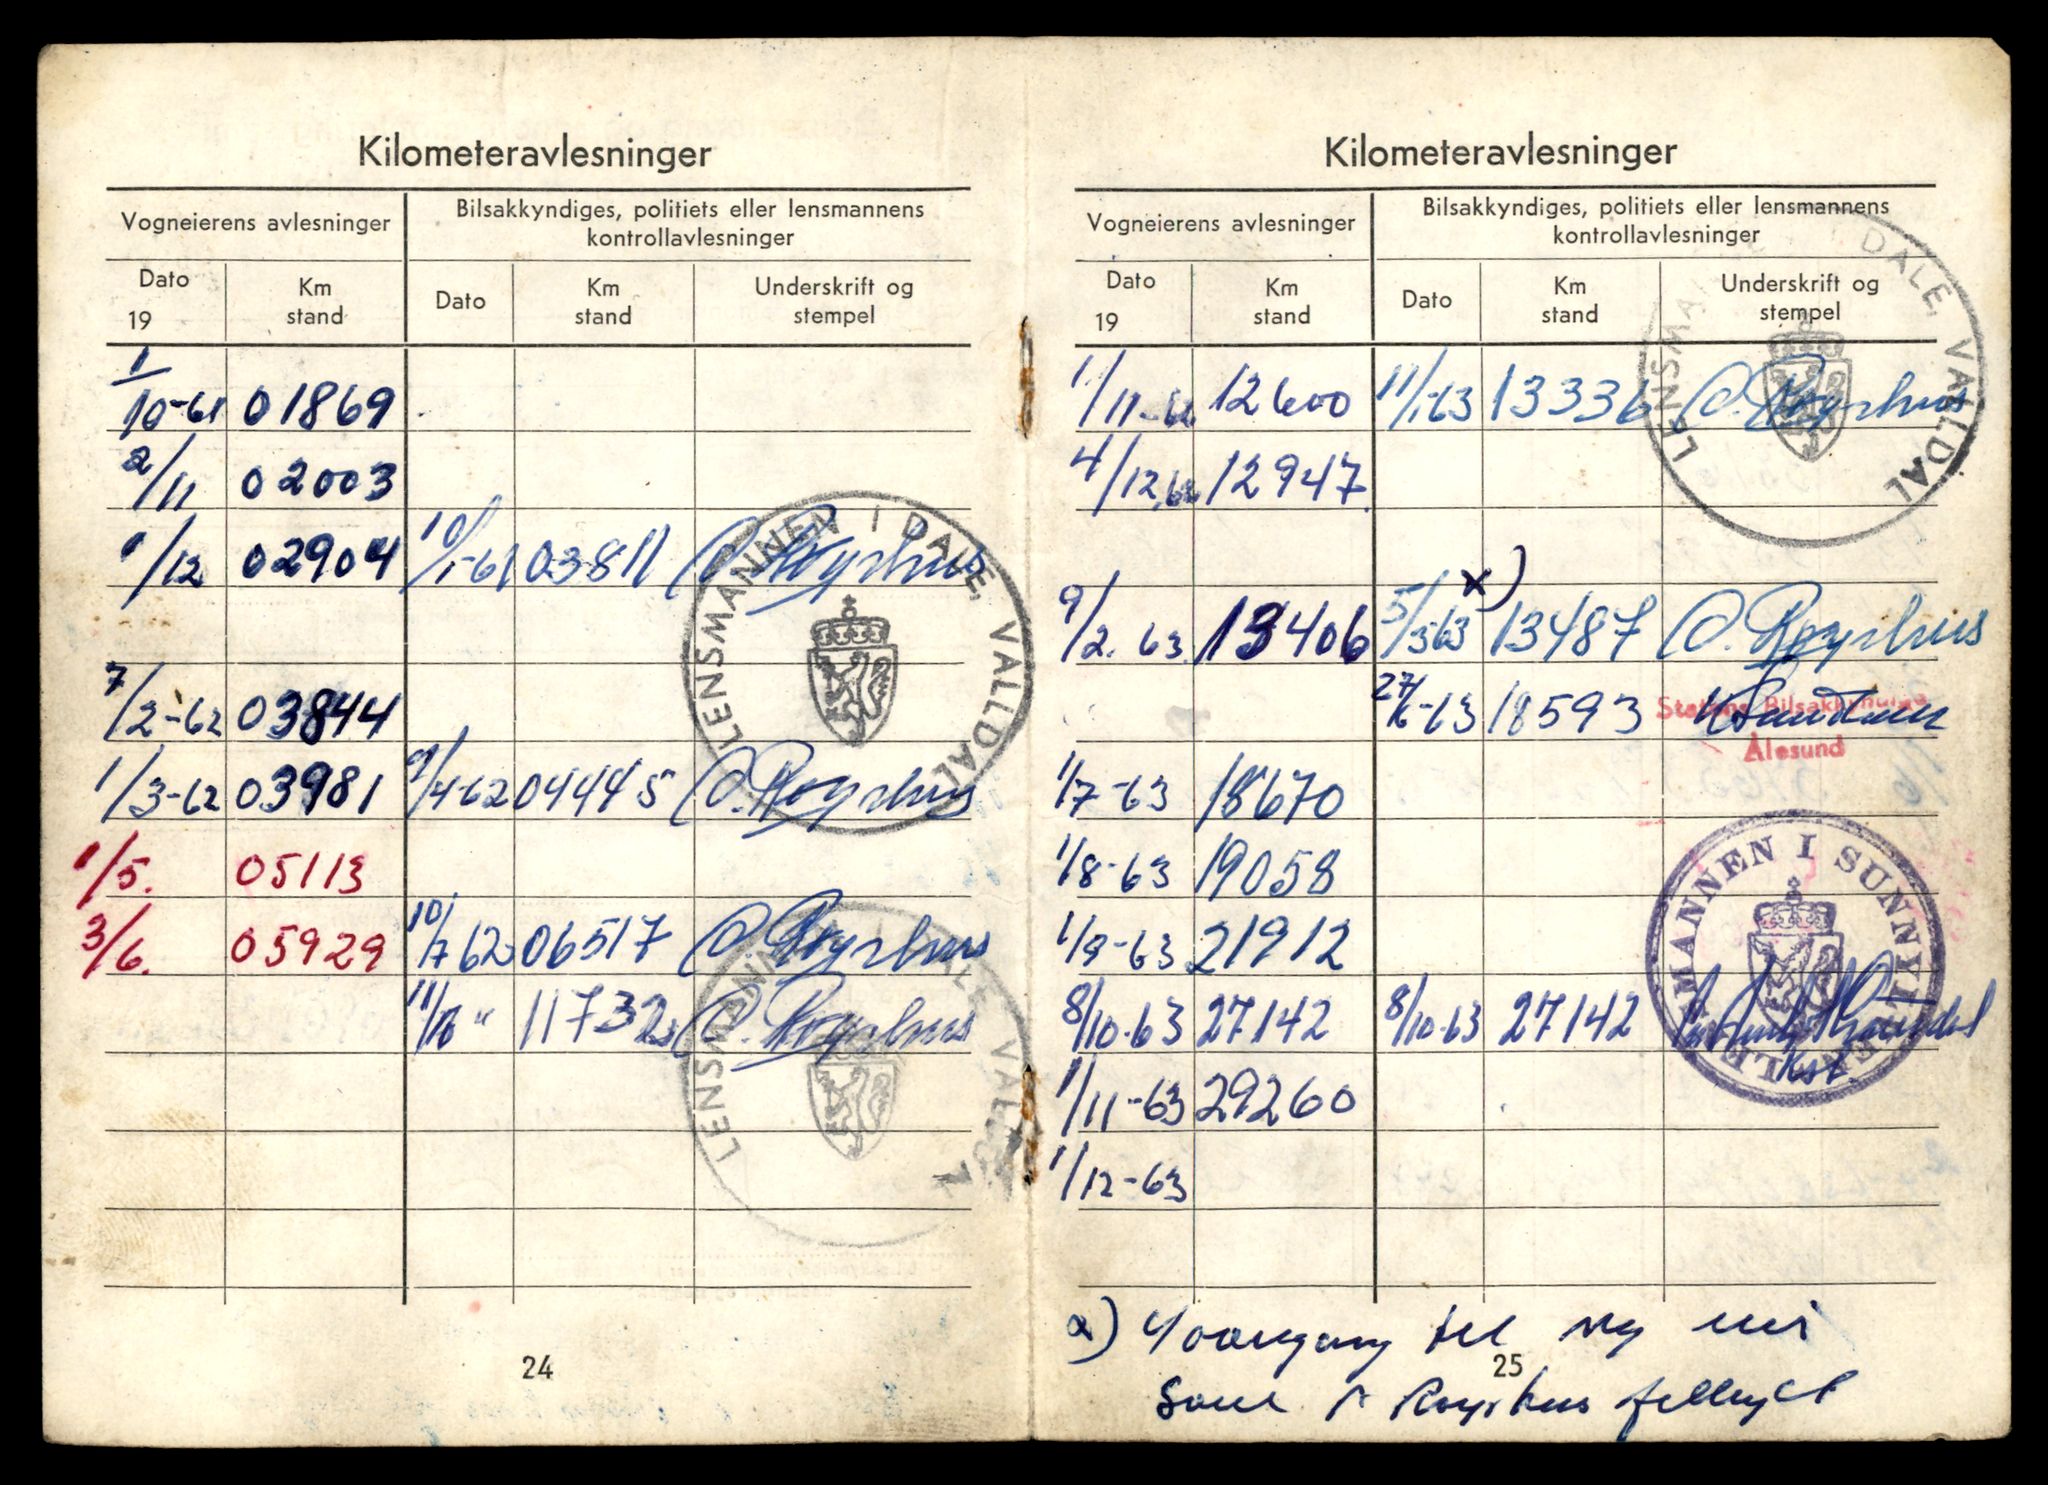 Kilometeravlesninger
Vogneierens avlesninger
Bilsakkyndiges, politiets eller lensmannens
kontrollavlesninger
Dato
19
Km
stand
Dato
Km
stand
Underskrift og
stempel
1/10-61 01869
2/11 02003
1/12 02904 10/1-61 03811 O. Røyrhus
LENSMANNEN I DALE, VALLDAL
7/2-62 03844
1/3-62 03981 9/4-62 04445 O. Røyrhus
1/5. 05113
3/6. 05929 10/7 62 06517 O. Røyrhus
11732 O. Røyrhus
LENSMANNEN I DALE, VALLDAL
24
Kilometeravlesninger
Vogneierens avlesninger
Bilsakkyndiges, politiets eller lensmannens
kontrollavlesninger
Dato
19
Km
stand
Dato
Km
stand
Underskrift og
stempel
LENSMANNEN I DALE, VALLDAL
1/11-62 12600 11/1-63 13336 O. Røyrhus
4/12.62 12947.
x)
9/2. 63. 13406 5/3-63 13487 O. Røyrhus
27/6-63 18593
Statens Bilsakkyndige
Ålesund
1/7-63 18670
1/8-63 19058
1/9-63 21912
8/10-63 27142 8/10-63 27142
Kst.
LENSMANNEN I SUNNYLVEN
1/11-63 29260
1/12-63
x) til ny
25
Røyrhus